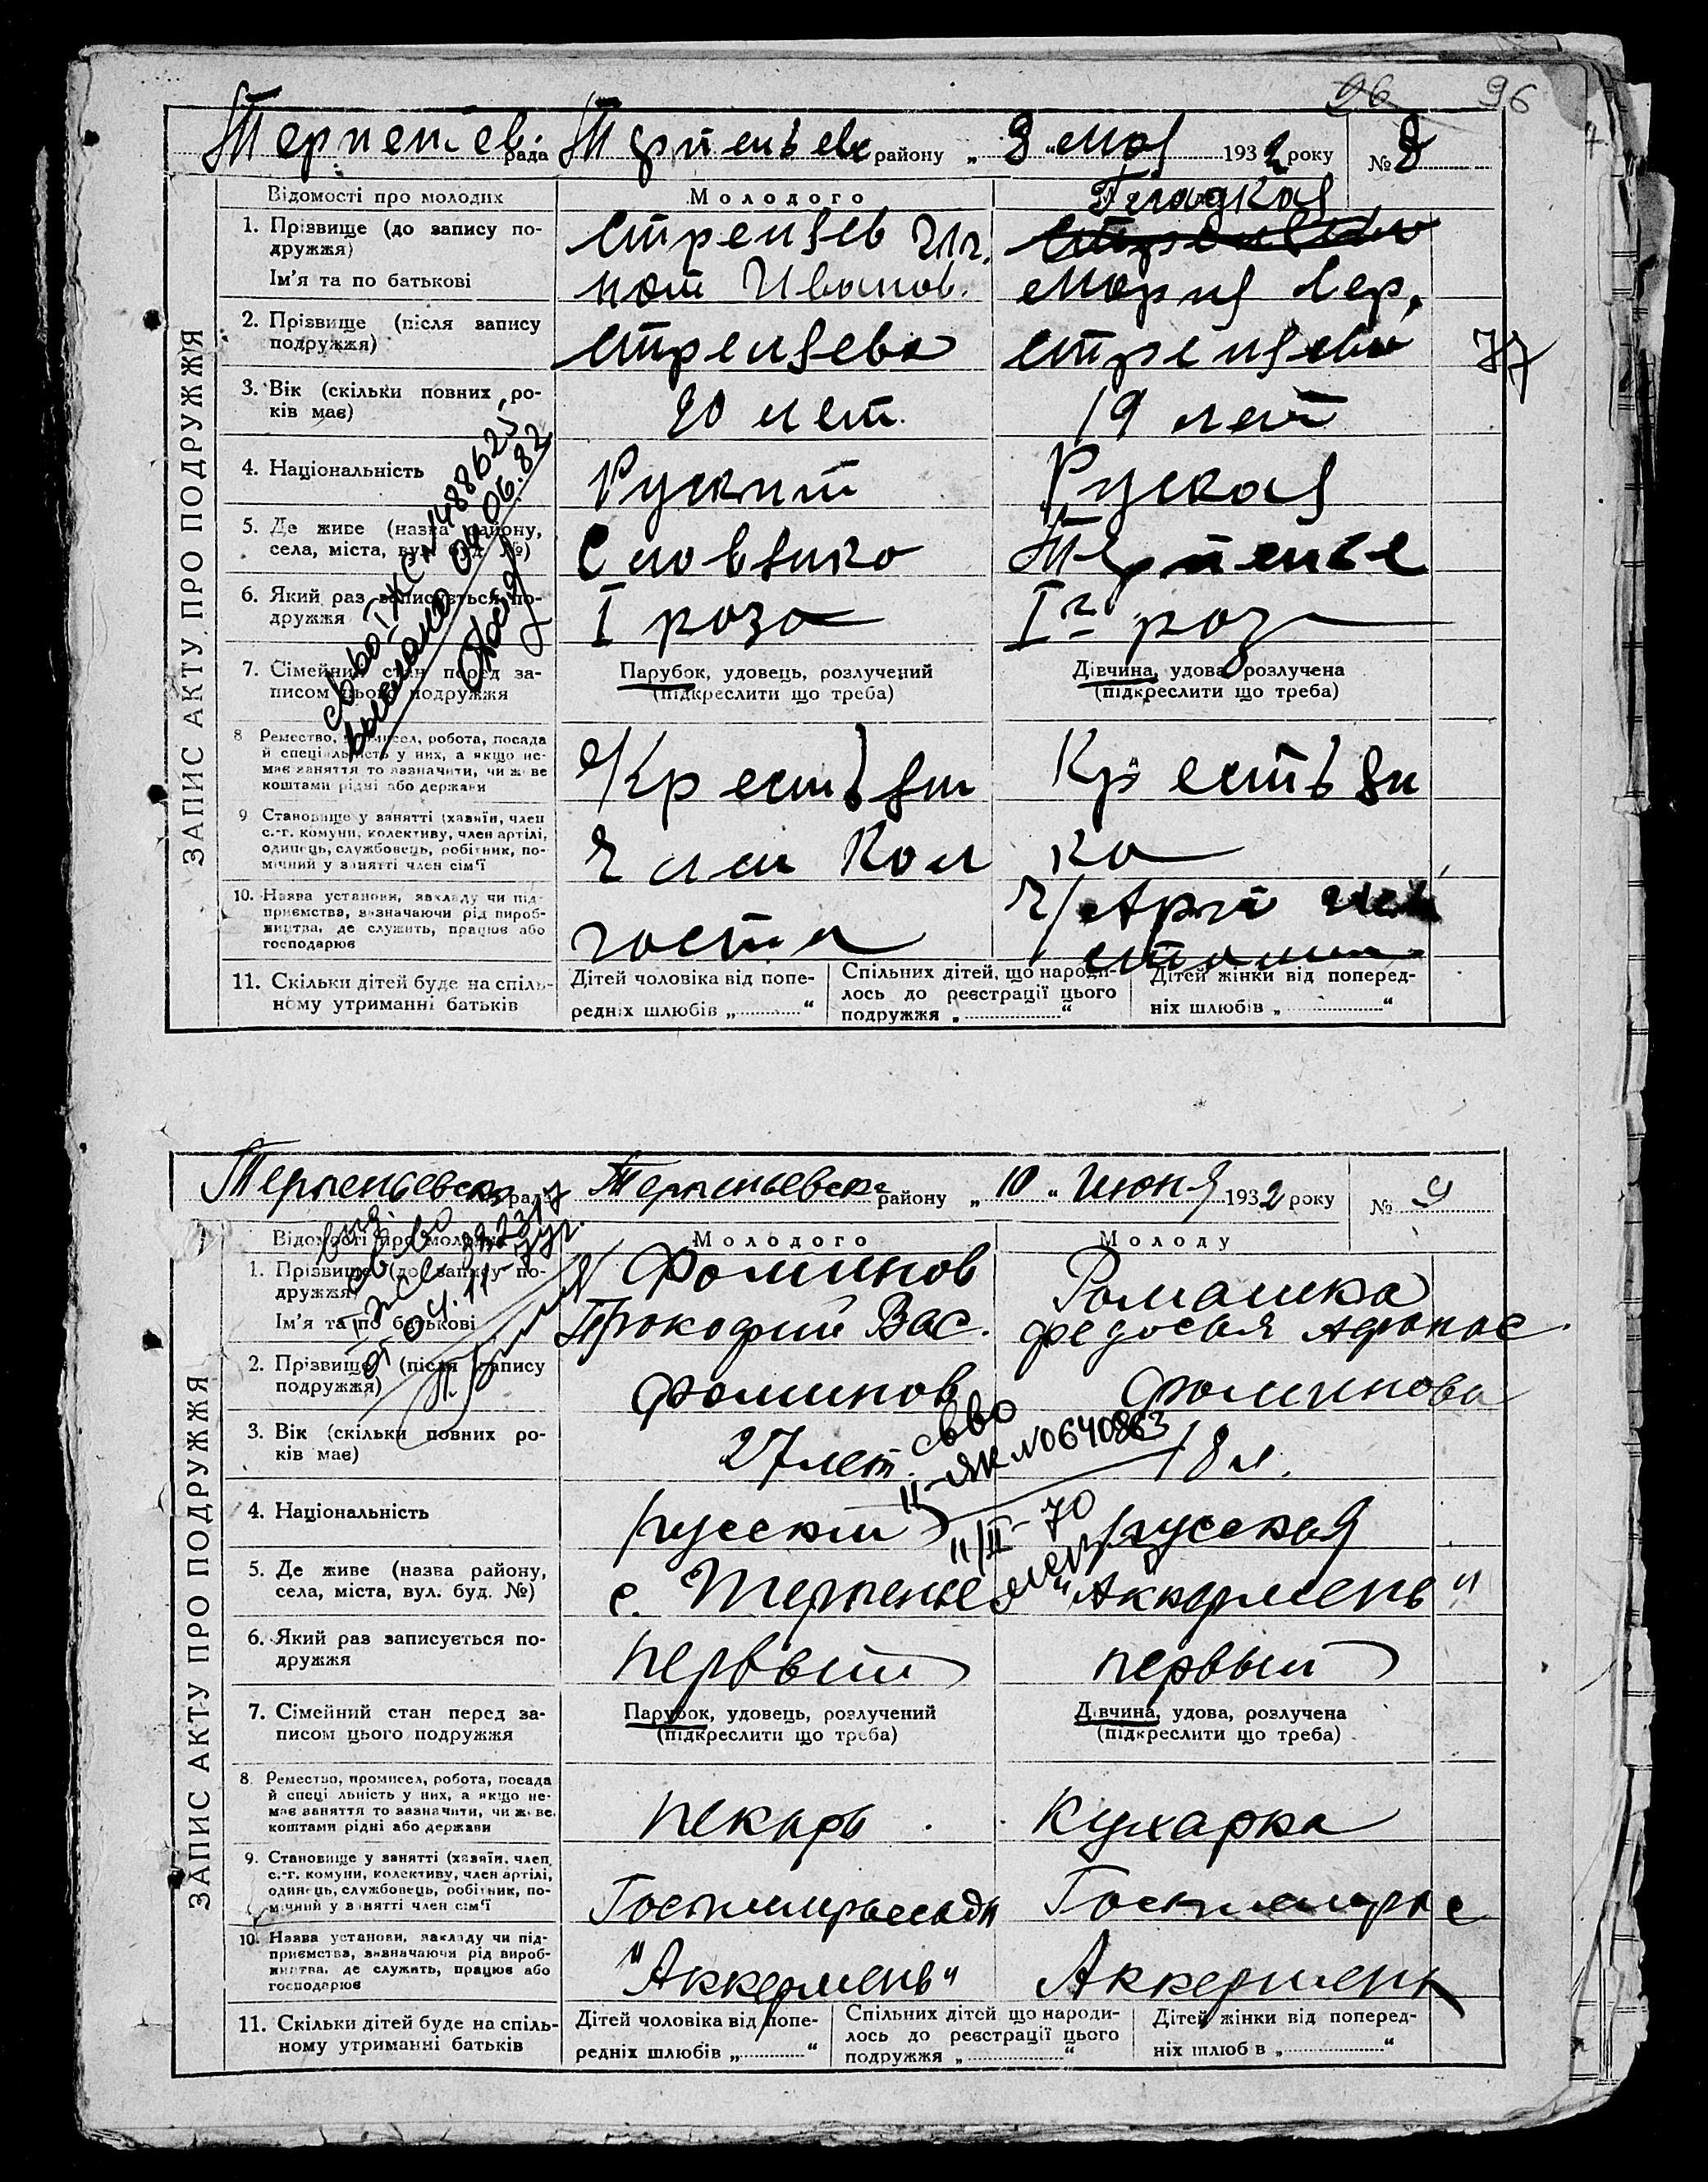 96 96
Терпенев. рада Терпеньевк району „ 8 " мая 1932 року № 8
ЗАПИС АКТУ ПРО ПОДРУЖЖЯ
Відомості про молодих
Молодого
Гладкая
1. Прізвище (до запису по-
дружжя)
Ім'я та по батькові
Стреляев Иг.
нат Иванов.
Мария Сер.
2. Прізвище (після запису
подружжя)
Стреляева
Стреляева
77
3. Вік (скільки повних ро-
ків має)
20 лет.
19 лет
4. Національність
Рускит
Руская
5. Де живе (назва району,
села, міста, вул. буд. №)
Терпение
6. Який раз записується по-
дружжя
I раза
I раз
7. Сімейний стан перед за-
писом цього подружжя
Парубок, удовець, розлучений
(підкреслити що треба)
Дівчина, удова, розлучена
(підкреслити що треба)
8 Ремество, промисел, робота, посада
й спеціальність у них, а якщо не-
має заняття то зазначити, чи живе
коштами рідні або держави
Крестьян
Крестьян
9 Становище у занятті (хазяїн, член
с.-г. комуни, колективу, член артілі,
одинець, службовець, робітник, по-
мічний у занятті член сім'ї
Член Кол
ка
10. Назва установи, закладу чи під-
приємства, визначаючи рід вироб-
ництва, де служить, працює або
господарює
11. Скільки дітей буде на спіль-
ному утриманні батьків
Дітей чоловіка від попе-
редніх шлюбів „ "
Спільних дітей, що народи-
лось до реєстрації цього
подружжя „ "
Дітей жінки від поперед-
ніх шлюбів „ "
св-во IЖС № 488625
выслано 04.06.82
Терпеньевск рада Терпеньевск району „ 10 " июня 1932 року № 9
ЗАПИС АКТУ ПРО ПОДРУЖЖЯ
Відомості про молодих
Молодого
Молоду
1. Прізвище (до запису по-
дружжя)
Ім'я та по батькові
Фоминов
Прокофий Вас.
Ромашка
Федосья Афанас.
2. Прізвище (після запису
подружжя)
Фоминов
Фоминова
3. Вік (скільки повних ро-
ків має)
27 лет.
18 л.
св-во
II-ЯК №0640863
11/II-70
4. Національність
русский
русская
5. Де живе (назва району,
села, міста, вул. буд. №)
с. Терпенье
"Аккермень"
6. Який раз записується по-
дружжя
первый
первый
7. Сімейний стан перед за-
писом цього подружжя
Парубок, удовець, розлучений
(підкреслити що треба)
Дівчина, удова, розлучена
(підкреслити що треба)
8. Ремество, промисел, робота, посада
й спеціальність у них, а якщо не-
має заняття то зазначити, чи живе
коштами рідні або держави
пекарь
Кухарка
9. Становище у занятті (хазяїн, член
с.-г. комуни, колективу, член артілі,
одинець, службовець, робітник, по-
мічний у занятті член сім'ї
10. Назва установи, закладу чи під-
приємства, визначаючи рід вироб-
ництва, де служить, працює або
господарює
"Аккермень"
Аккермень
11. Скільки дітей буде на спіль-
ному утриманні батьків
Дітей чоловіка від попе-
редніх шлюбів „ "
Спільних дітей що народи-
лось до реєстрації цього
подружжя „ "
Дітей жінки від поперед-
ніх шлюбів „ "